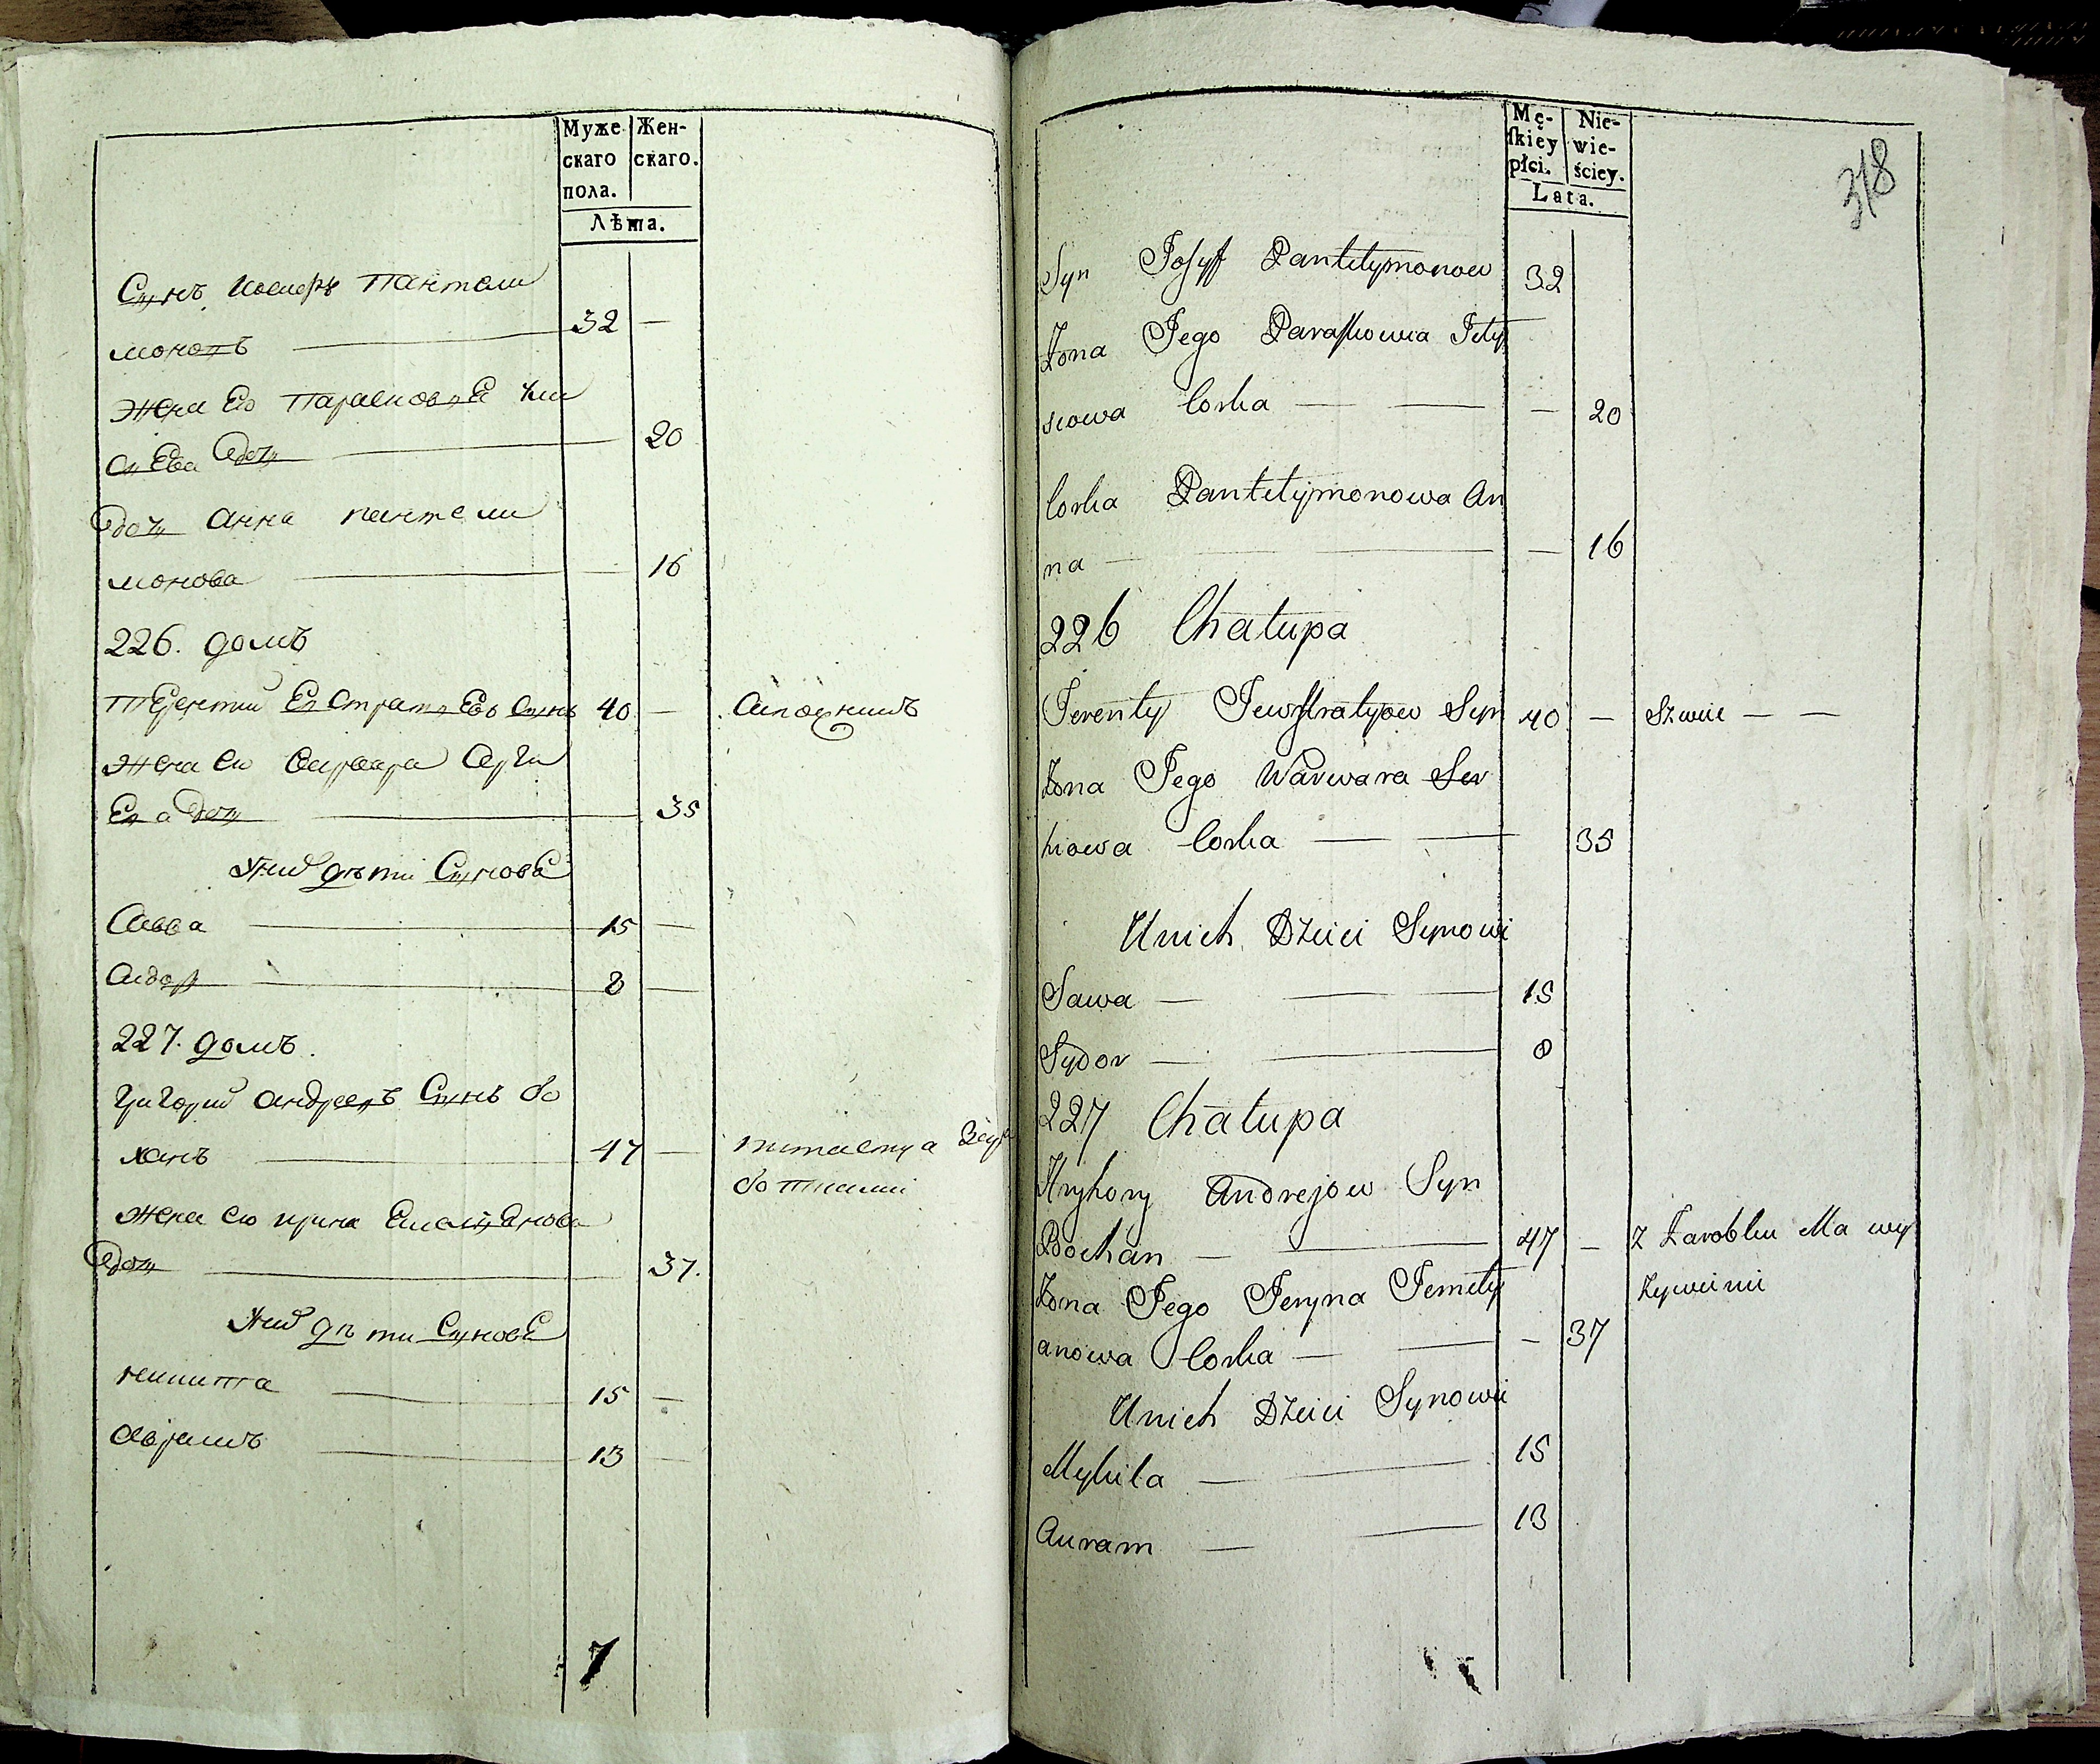 Муже
скаго
пола.
Жен-
скаго.
Лѣта.
Сынъ Иосифъ Пантели
моновъ 32 —
Жена Его Парасковья
Дочь 20
Дочь Анна Пантели
монова 16
226. домъ
Терентий Евстратиевъ Сынъ 40 — Сапожникъ
Жена Ево Варвара Серги
Ева Дочь 35
У них дѣти Сынове
Савва 15 —
Сидор 8 —
227. домъ.
Григорий Андреевъ Сынъ Бо
ханъ 47 —
питается
ботками
Жена Ево Ирина Емельянова
Дочь 37.
У них дѣти Сынове
Никита 15 —
Аврамъ 13 —
7
Mę-
skiey
płci.
Nie-
wie-
ściey.
Lata.
318
Syn Josyf Pantelymonow 32
Żona Jego Paraskowia
Corka — — — 20
Corka Pantelymonowa An
na — — — 16
226 Chałupa
Terenty Jewstratyow Syn 40 — Szwiec — —
Żona Jego Warwara Ser
hiowa Corka — — 35
Unich Dzieci Synowi
Sawa — — 15
Sydor — — 8
227 Chałupa
Hryhory Andrejow Syn
Bochan — — 47 — Z Zarobku Ma wy
Żona Jego Jeryna Jemely
Żywienie
anowa Corka — — — 37
Unich Dzieci Synowie
Mykita — — 15
Auram — — 13